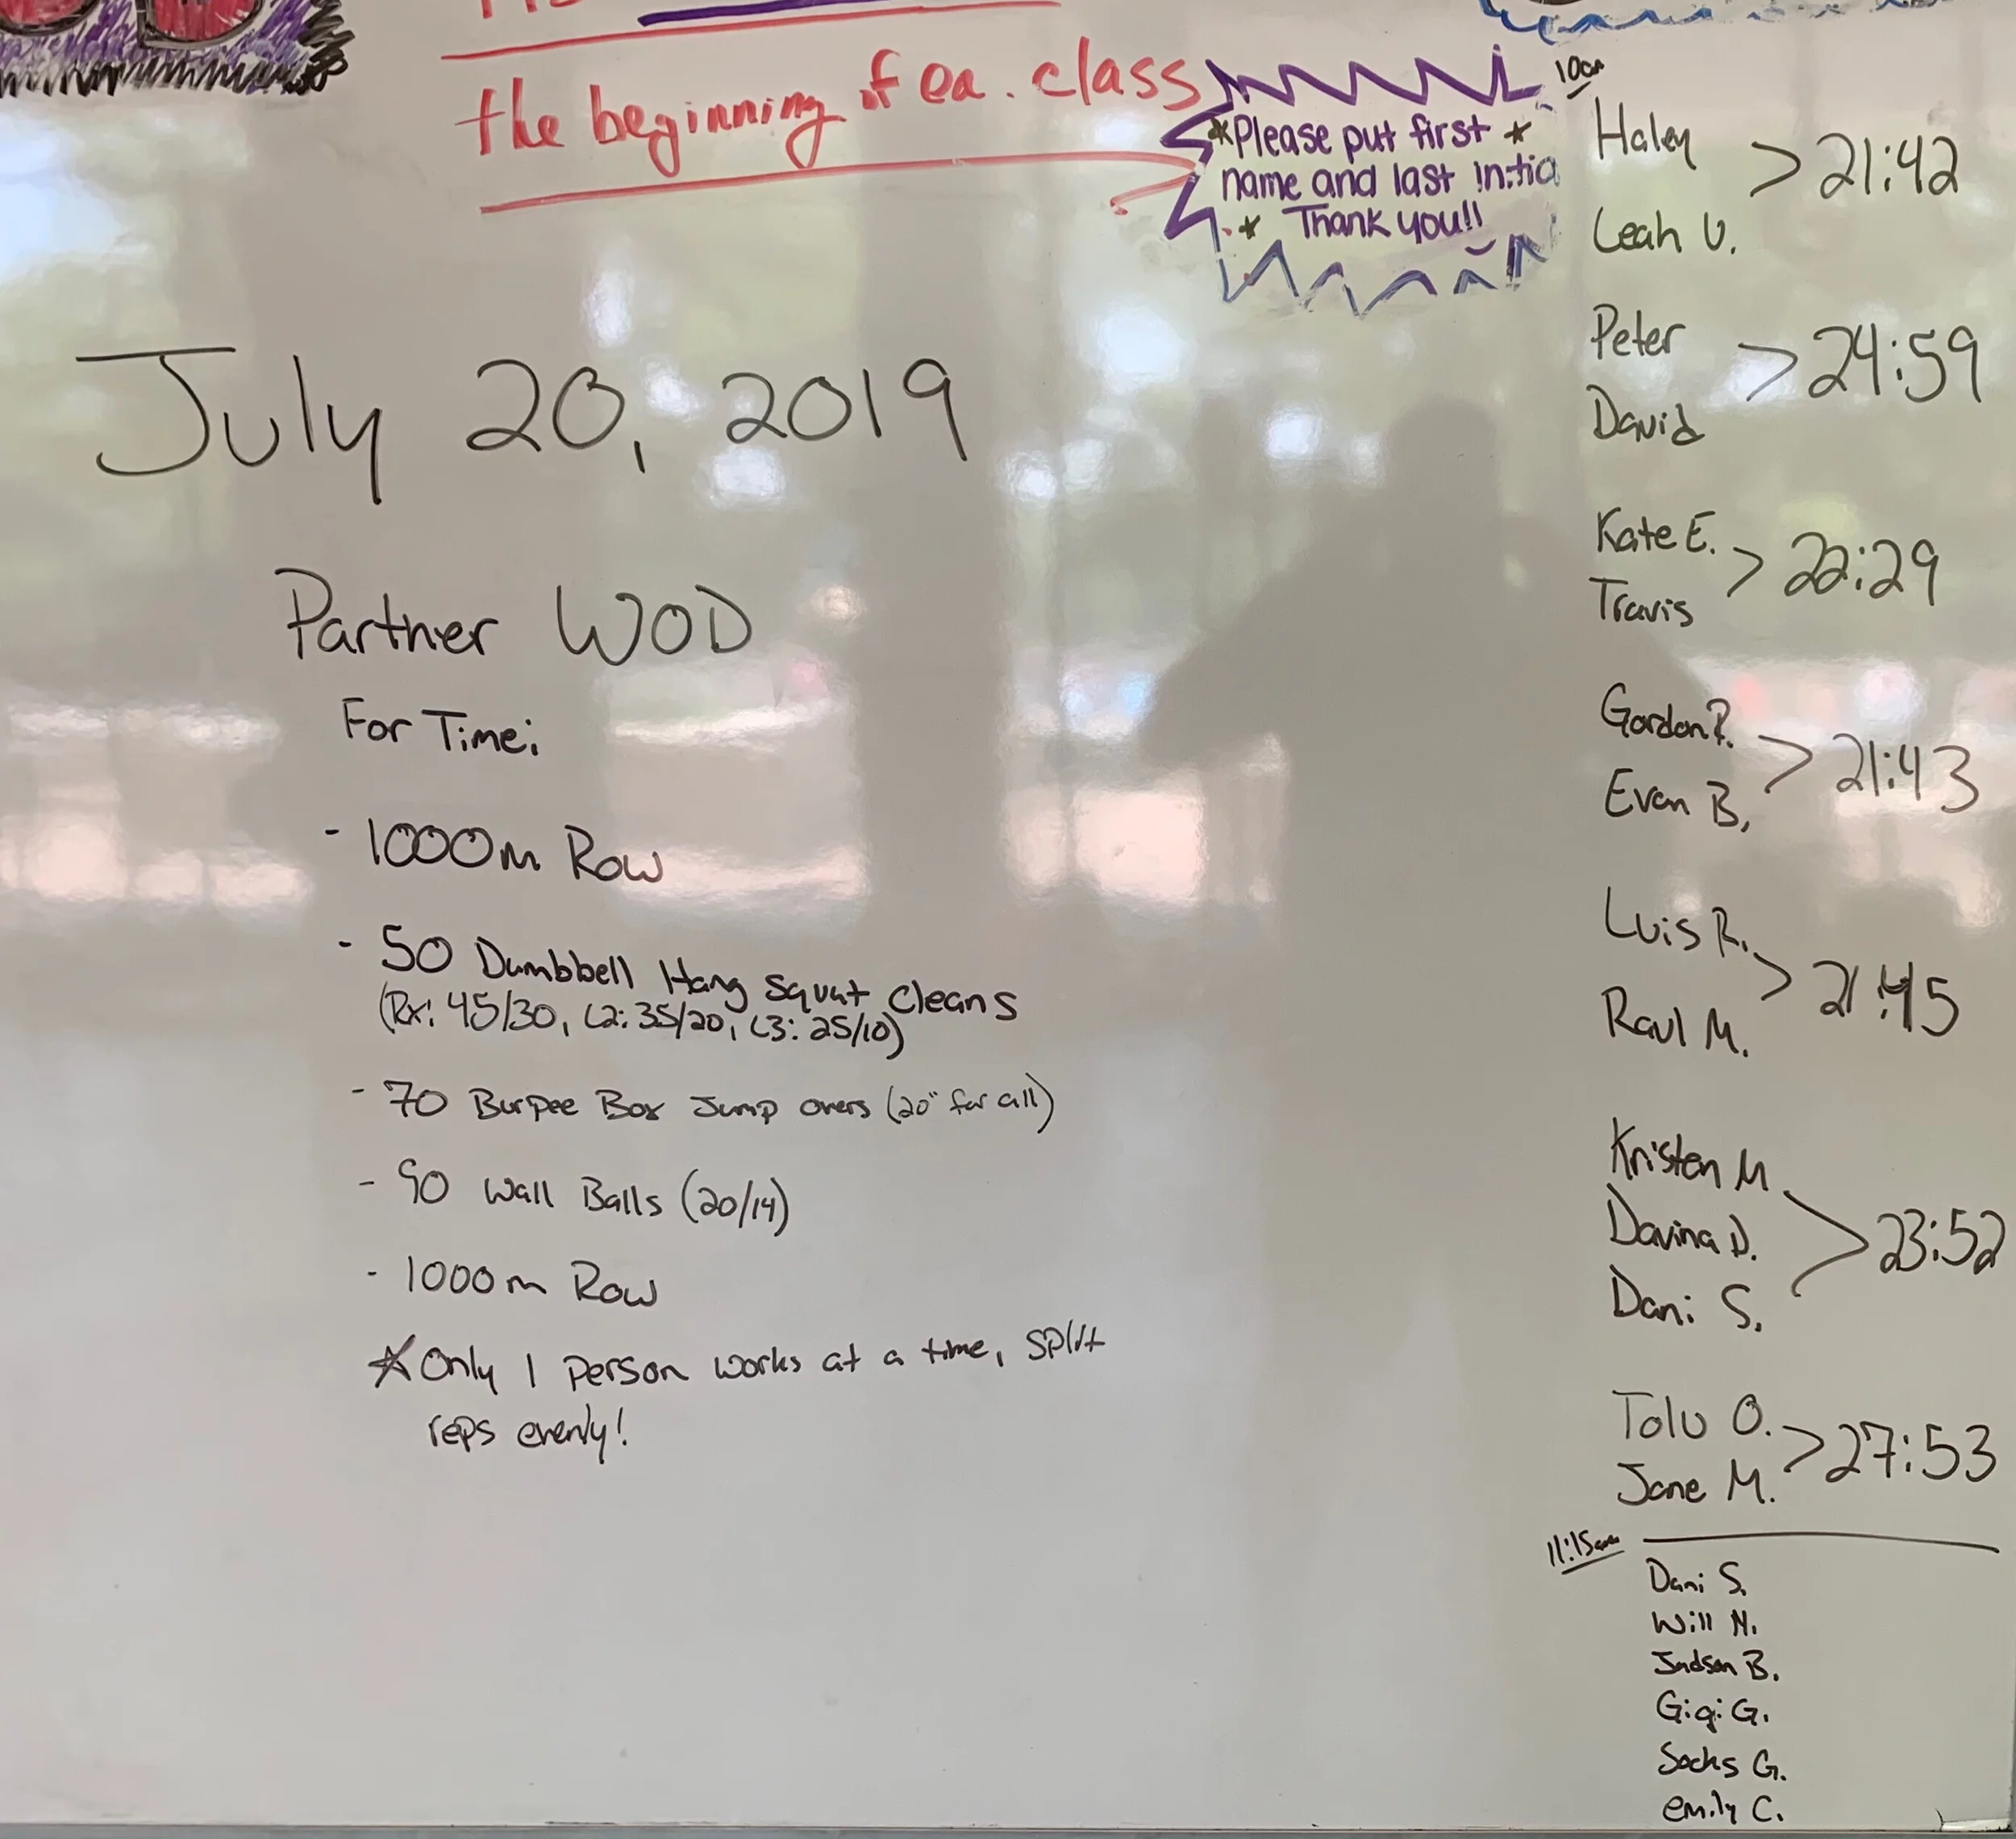 the beginning of ea. class
*Please put first *
name and last initia
* Thank you!!
July 20, 2019
Partner WOD
For Time:
- 1000m Row
- 50 Dumbbell Hang Squat Cleans
(Rx: 45/30, L2: 35/20, L3: 25/10)
- 70 Burpee Box Jump overs (20" for all)
- 90 Wall Balls (20/14)
- 1000m Row
☆ Only 1 person works at a time, split
reps evenly!
10am
Haley
Leah V.
> 21:42
Peter
David
> 24:59
Kate E.
Travis
> 22:29
Gordon P.
Evan B.
> 21:43
Luis R.
Raul M.
> 21:45
Kristen M
Davina D.
Dani S.
> 23:52
Tolu O.
Jane M.
> 27:53
11:15am
Dani S.
Will M.
Judson B.
Gigi G.
Socks G.
emily C.